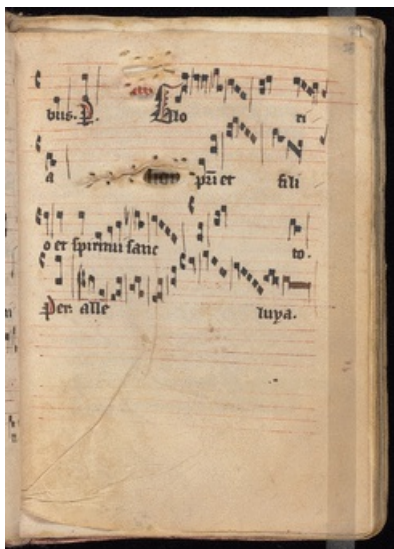 bus. P. Glo ri
a pri et fili
o et spiritui sanc to.
Per. alle luya.